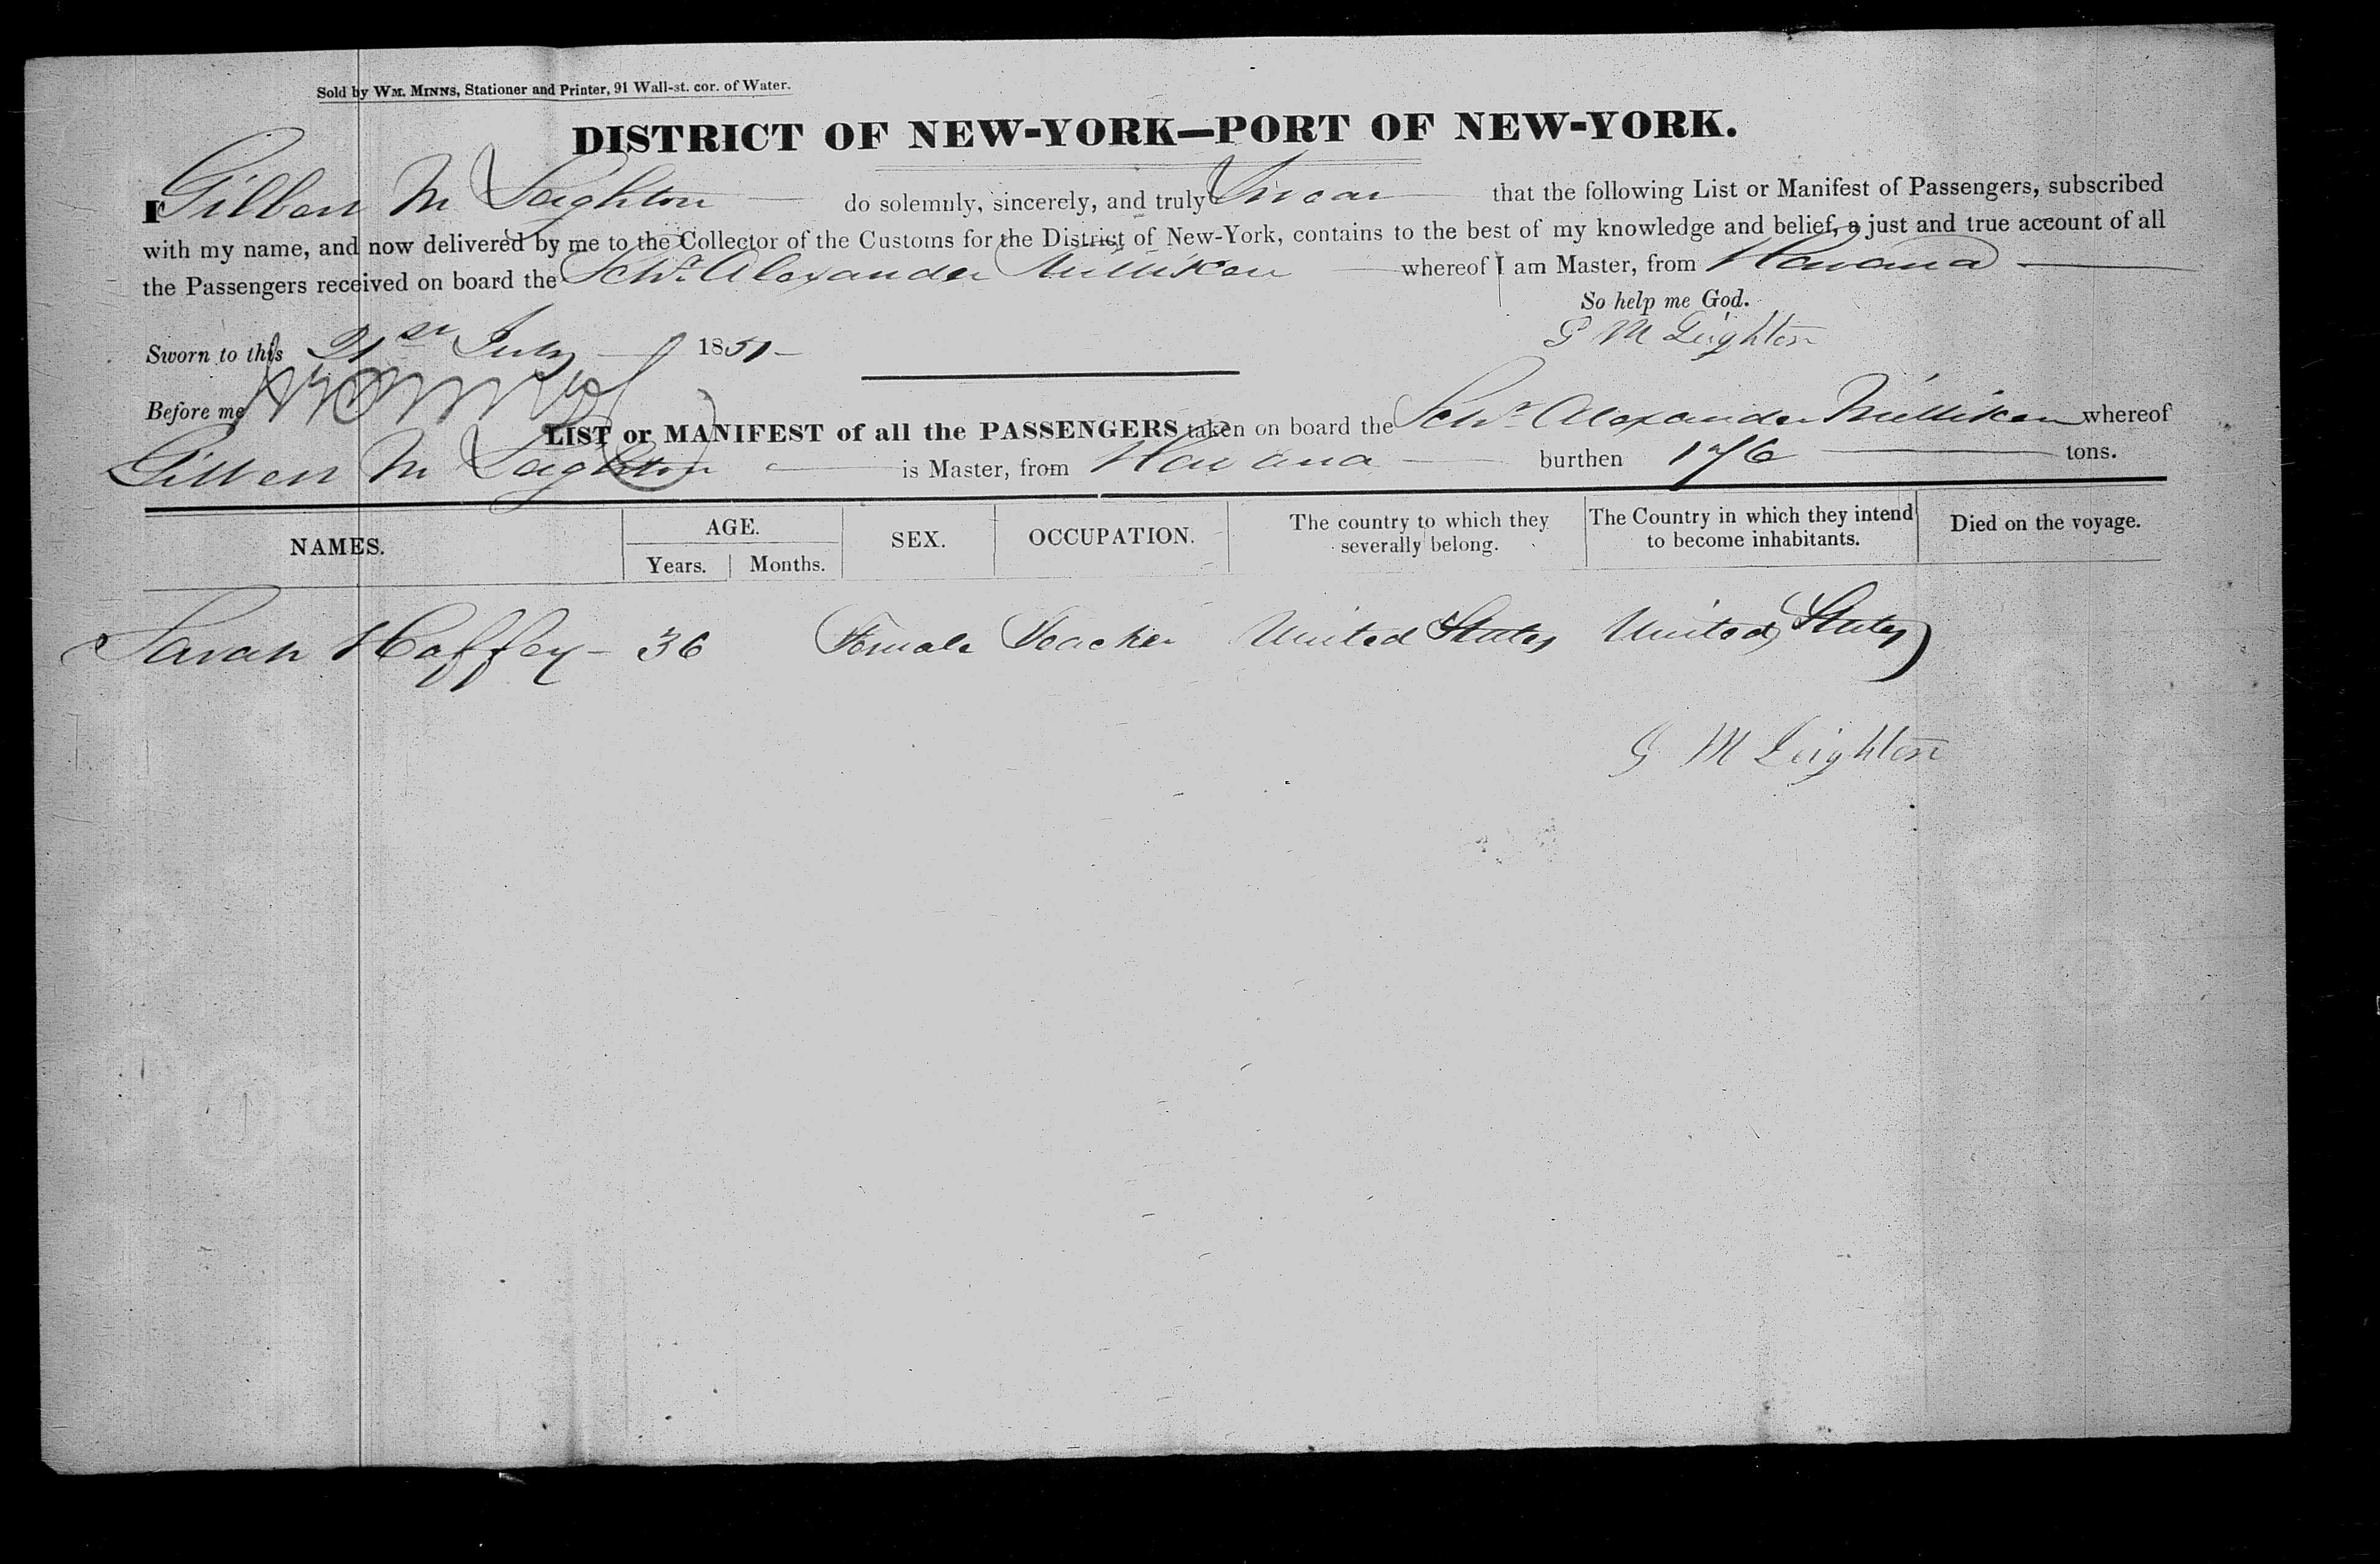 Sold by WM. MINNS, Stationer and Printer, 91 Wall-st. cor. of Water.
DISTRICT OF NEW-YORK—PORT OF NEW-YORK.
I Gilbert M Leighton do solemnly, sincerely, and truly Swear that the following List or Manifest of Passengers, subscribed
with my name, and now delivered by me to the Collector of the Customs for the District of New-York, contains to the best of my knowledge and belief, a just and true account of all
the Passengers received on board the Schr. Alexander Milliken whereof I am Master, from Havana
So help me God.
Sworn to this 21st July 1851
G M Leighton
Before me
LIST or MANIFEST of all the PASSENGERS taken on board the Schr. Alexander Milliken whereof
Gilbert M Leighton is Master, from Havana burthen 176 tons.
NAMES. AGE. Years. Months. SEX. OCCUPATION. The country to which they severally belong. The Country in which they intend to become inhabitants. Died on the voyage.
Sarah Haffey - 36 Female Teacher United States United States
G M Leighton